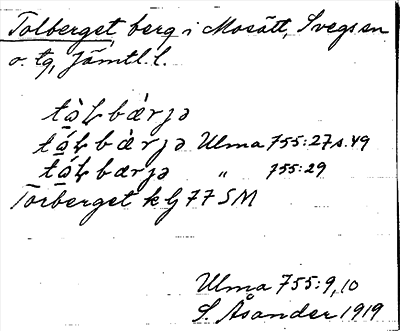 Tolberget berg i Mosätt, Svegs sn
o. tg, Jämtl. l.
tàɫbàrjə
táɫbàrjə Ulma 755:27 s. 49
táɫbærjə " 755:29
Torberget k bl 77 SM
Ulma 755:9,10
S. Åsander 1919